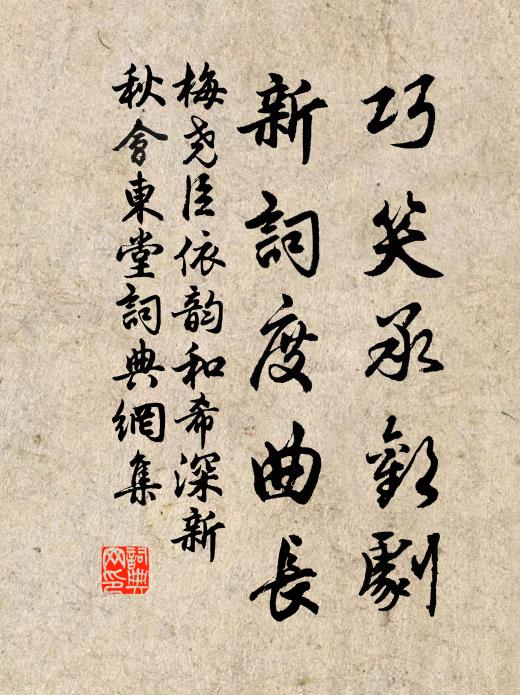 巧笑承歡劇
新詞度曲長
梅堯臣依韵和希深新
秋會東堂詞典網集
詞典网印